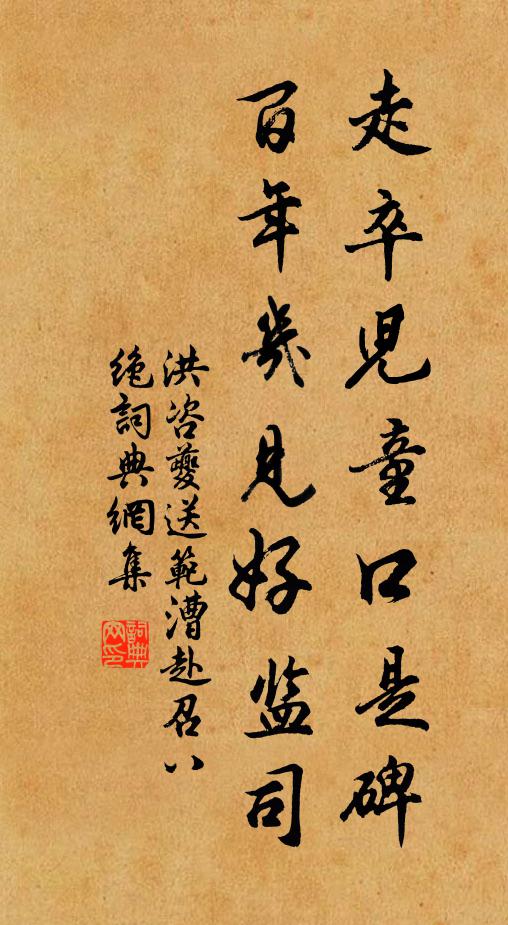 走卒兒童口是碑
百年幾見好监司
洪咨夔送範漕赴召八
絶詞典網集
詞典網印